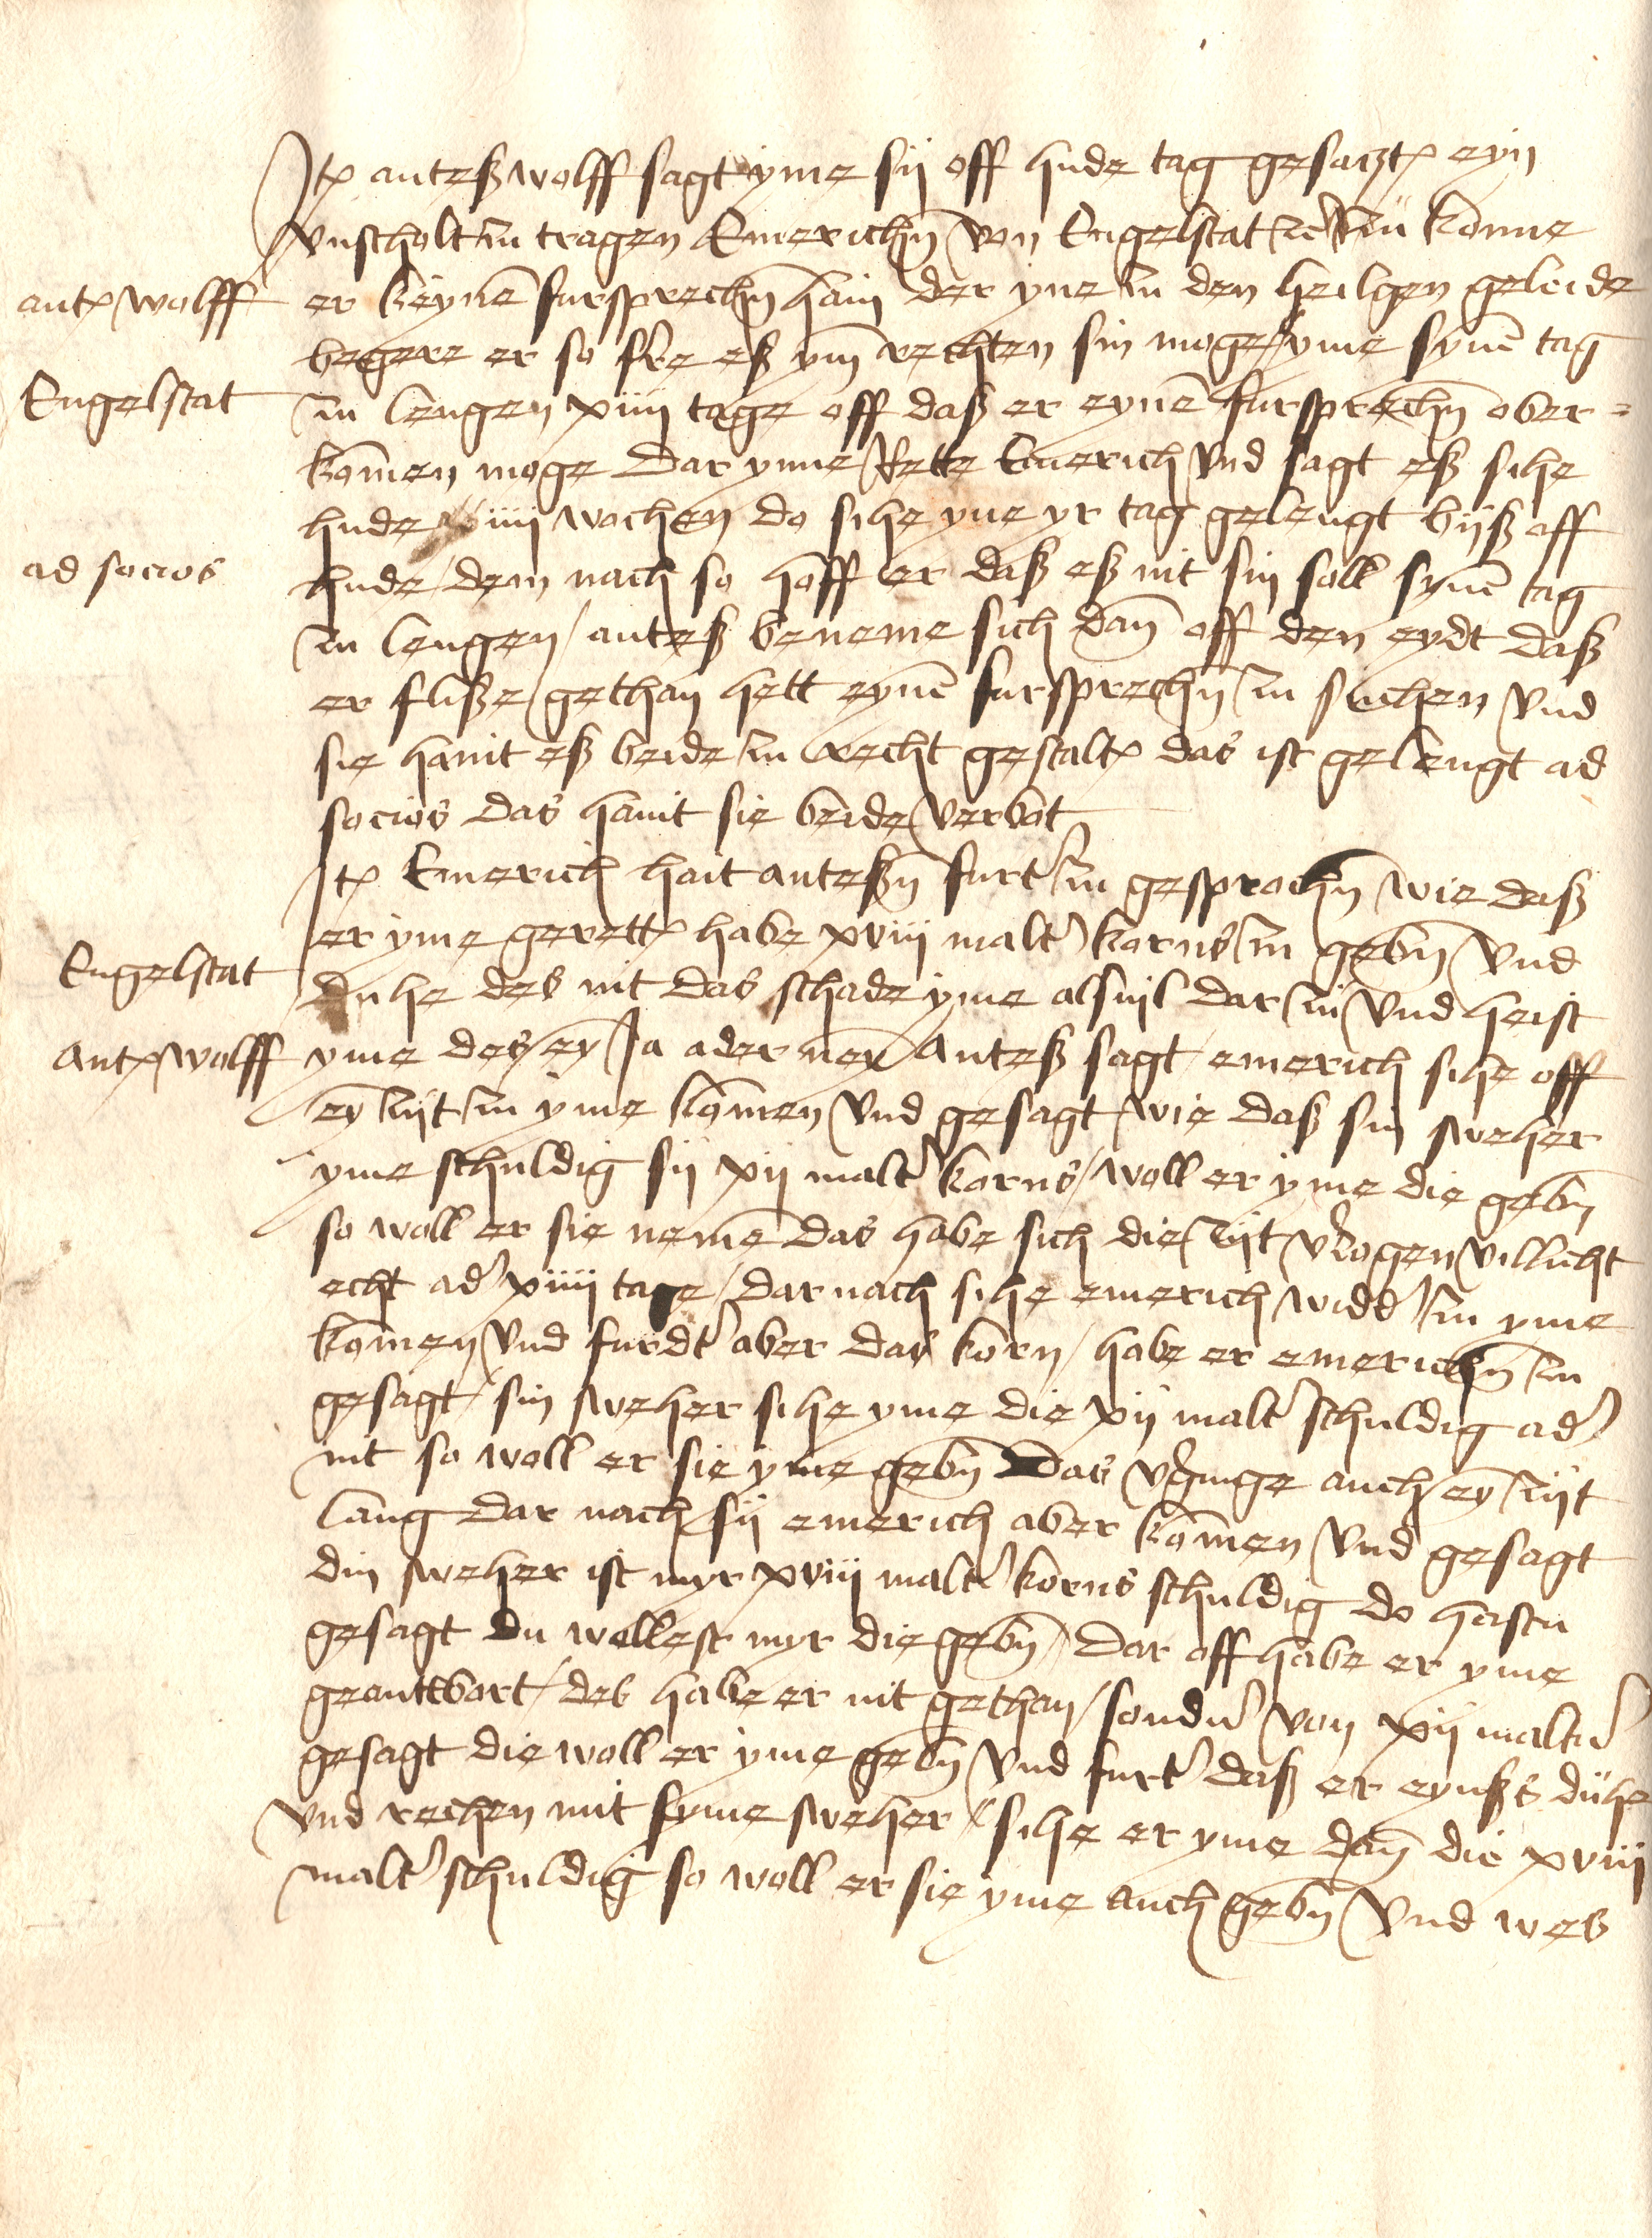 Itꝑ anteß wolff sagt yme sij off hude tag gesatztꝑ eyn
vnscholt zu tragen Emerichn̄ von Engelstat nů konne
antꝑ wolff
er keynē fursprechn̄ hain der yne zu den heilgen geleide
begere er so fe͛re eß ym̄ rechten sin moge yme synē tag
Engelstat
zu lengen xiiij tage off daß er eynē fursprechn̄ ober=
komen moge Dar ynne Rette Emerich vnd sagt eß sihe
hude iiij wochen do sihe yne yr tag gelengt bijß off
ad socios
hude / dem nach so hoff er daß eß nit sin soll synē tag
zu lengen / anteß beneme sich dan̄ off den eydt daß
er fliße gethan hett eynē fursprechn̄ zu suchen vnd
sie hānt eß beide zu recht gestaltꝑ das ist gelengt ad
socios das hānt sie beide verbot
Itꝑ Emerich hait anteßn̄ furt͛ zu gesprochn̄ wie daß
er yme gerettꝑ habe xviij malt͛ korns zu gebn̄ vnd
Engelstat
duhe des nit das schade yme alsuil dar zu vnd heist
Antꝑ wolff
yme des eyn Ja ader neyn Anteß sagt / emerich sihe off
eȳ zijt zu yme komen vnd gesagt / wie daß sin sweher
yme schuldig sij xij malt͛ korns / woll er yme die gebn̄
so woll er sie neme Das habe sich die zijt v͛zogen villicht
echt ad͛ xiiij tage / dar nach sihe emerich widd͛ zu yme
komen vnd furdt͛ aber das korn / habe er emerichn̄ zu
gesagt / sin sweher sihe yme die xij malt͛ schuldig ad͛
nit so woll er sie yme gebn̄ Das v͛ginge auch eȳ zijt
lang dar nach sij emerich aber komen vnd gesagt
din sweher ist myr xviij malt͛ korns schuldig do hastu
gesagt Du wollest myr die gebn̄ / Dar off habe er yme
geantwort / des habe er nit gethan / sond͛n von xij malt͛n
gesagt die woll er yme gebn̄ vnd furt͛ daß er eynß duhe
vnd rechen mit syme sweher / sihe er yme dan̄ die xviij
malt͛ schuldig so woll er sie yme auch gebn̄ vnd wes